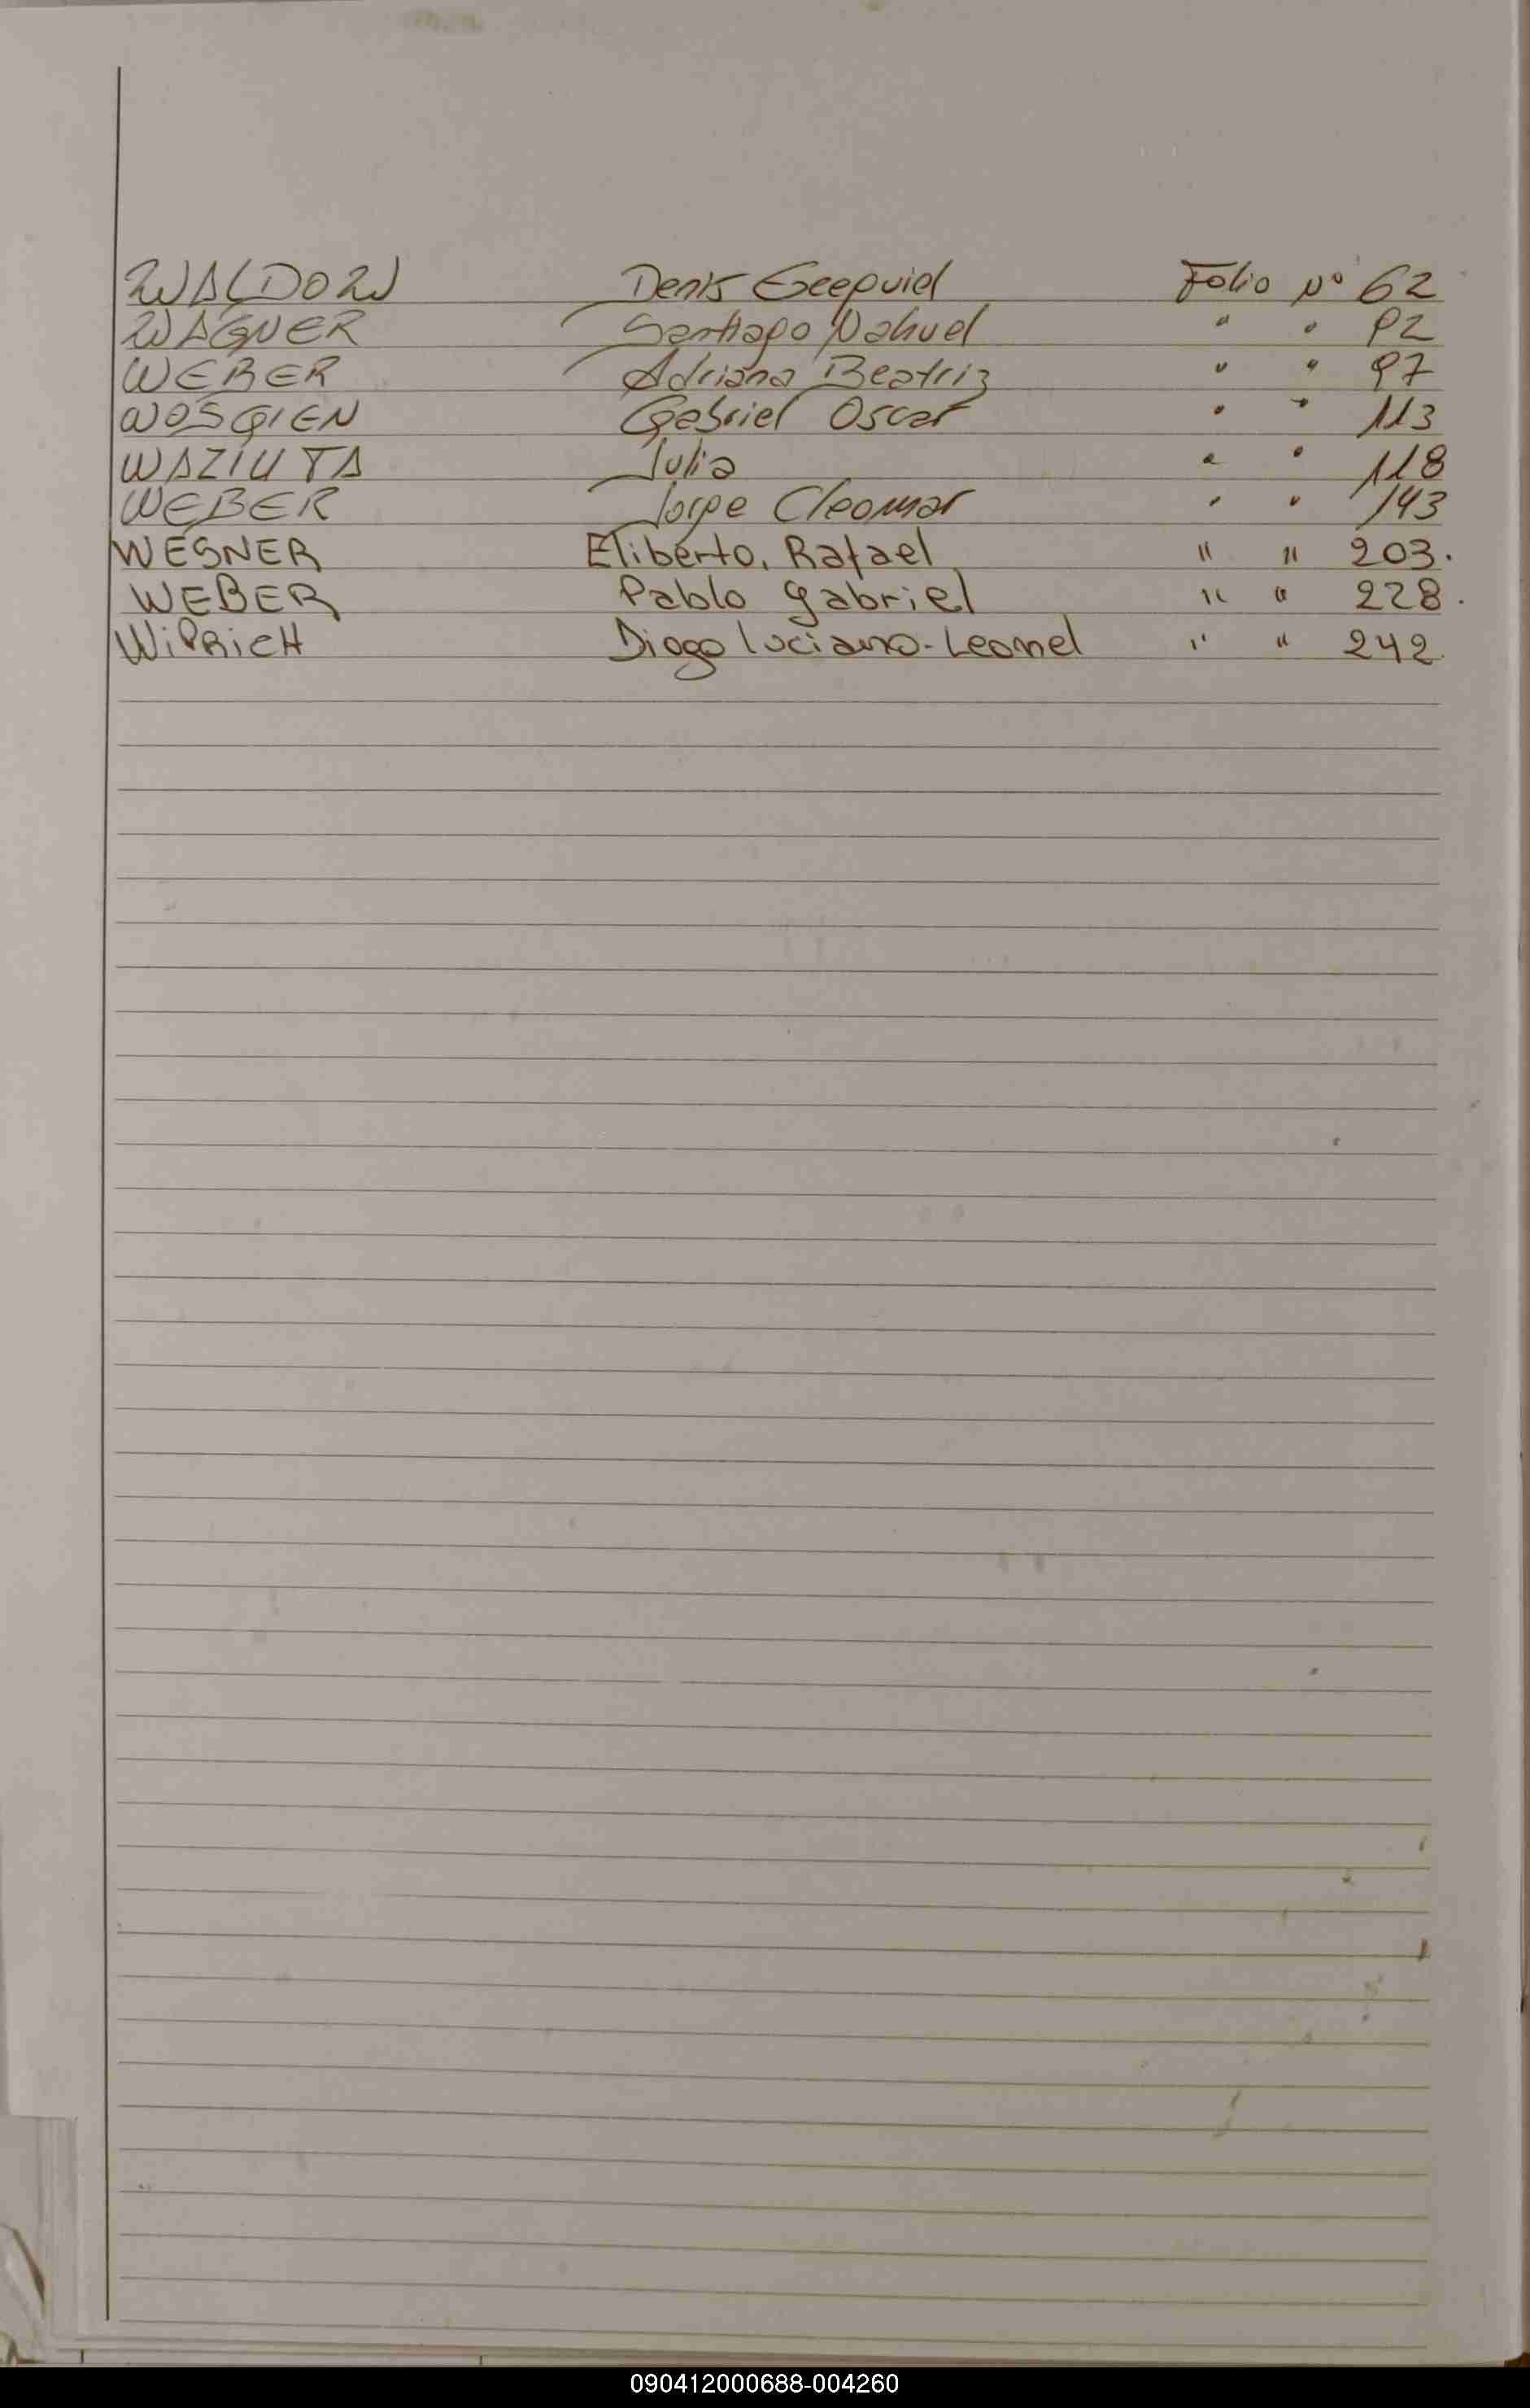 WALDOW Denis Ezequiel Folio Nº 62
WAGNER Santiago Nahuel " " 92
WEBER Adriana Beatriz " " 97
WOSGIEN Gabriel Oscar " " 113
WAZIUTA Julia " " 118
WEBER Jorge Cleomar " " 143
WESNER Eliberto, Rafael " " 203.
WEBER Pablo gabriel " " 228.
Diogo Luciano-Leonel " " 242.
090412000688-004260